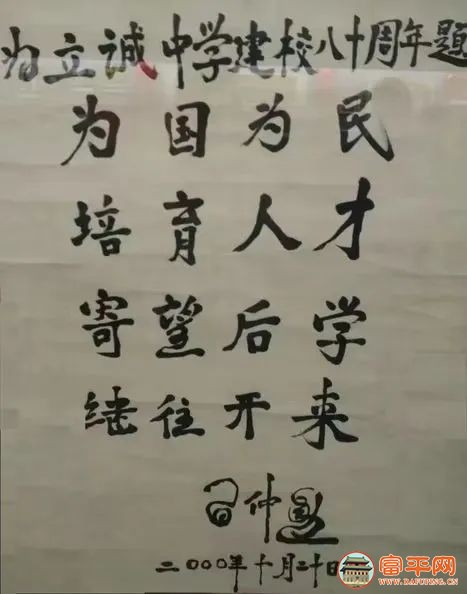 为立诚中学建校八十周年题
为国为民
培育人才
寄望后学
继往开来
习仲勋
二000年十月二十日
富平网
WWW.DAFUPING.CN